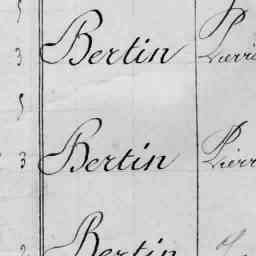 5
3 Bertin Pierre
5
3 Bertin Pierre
Bertin